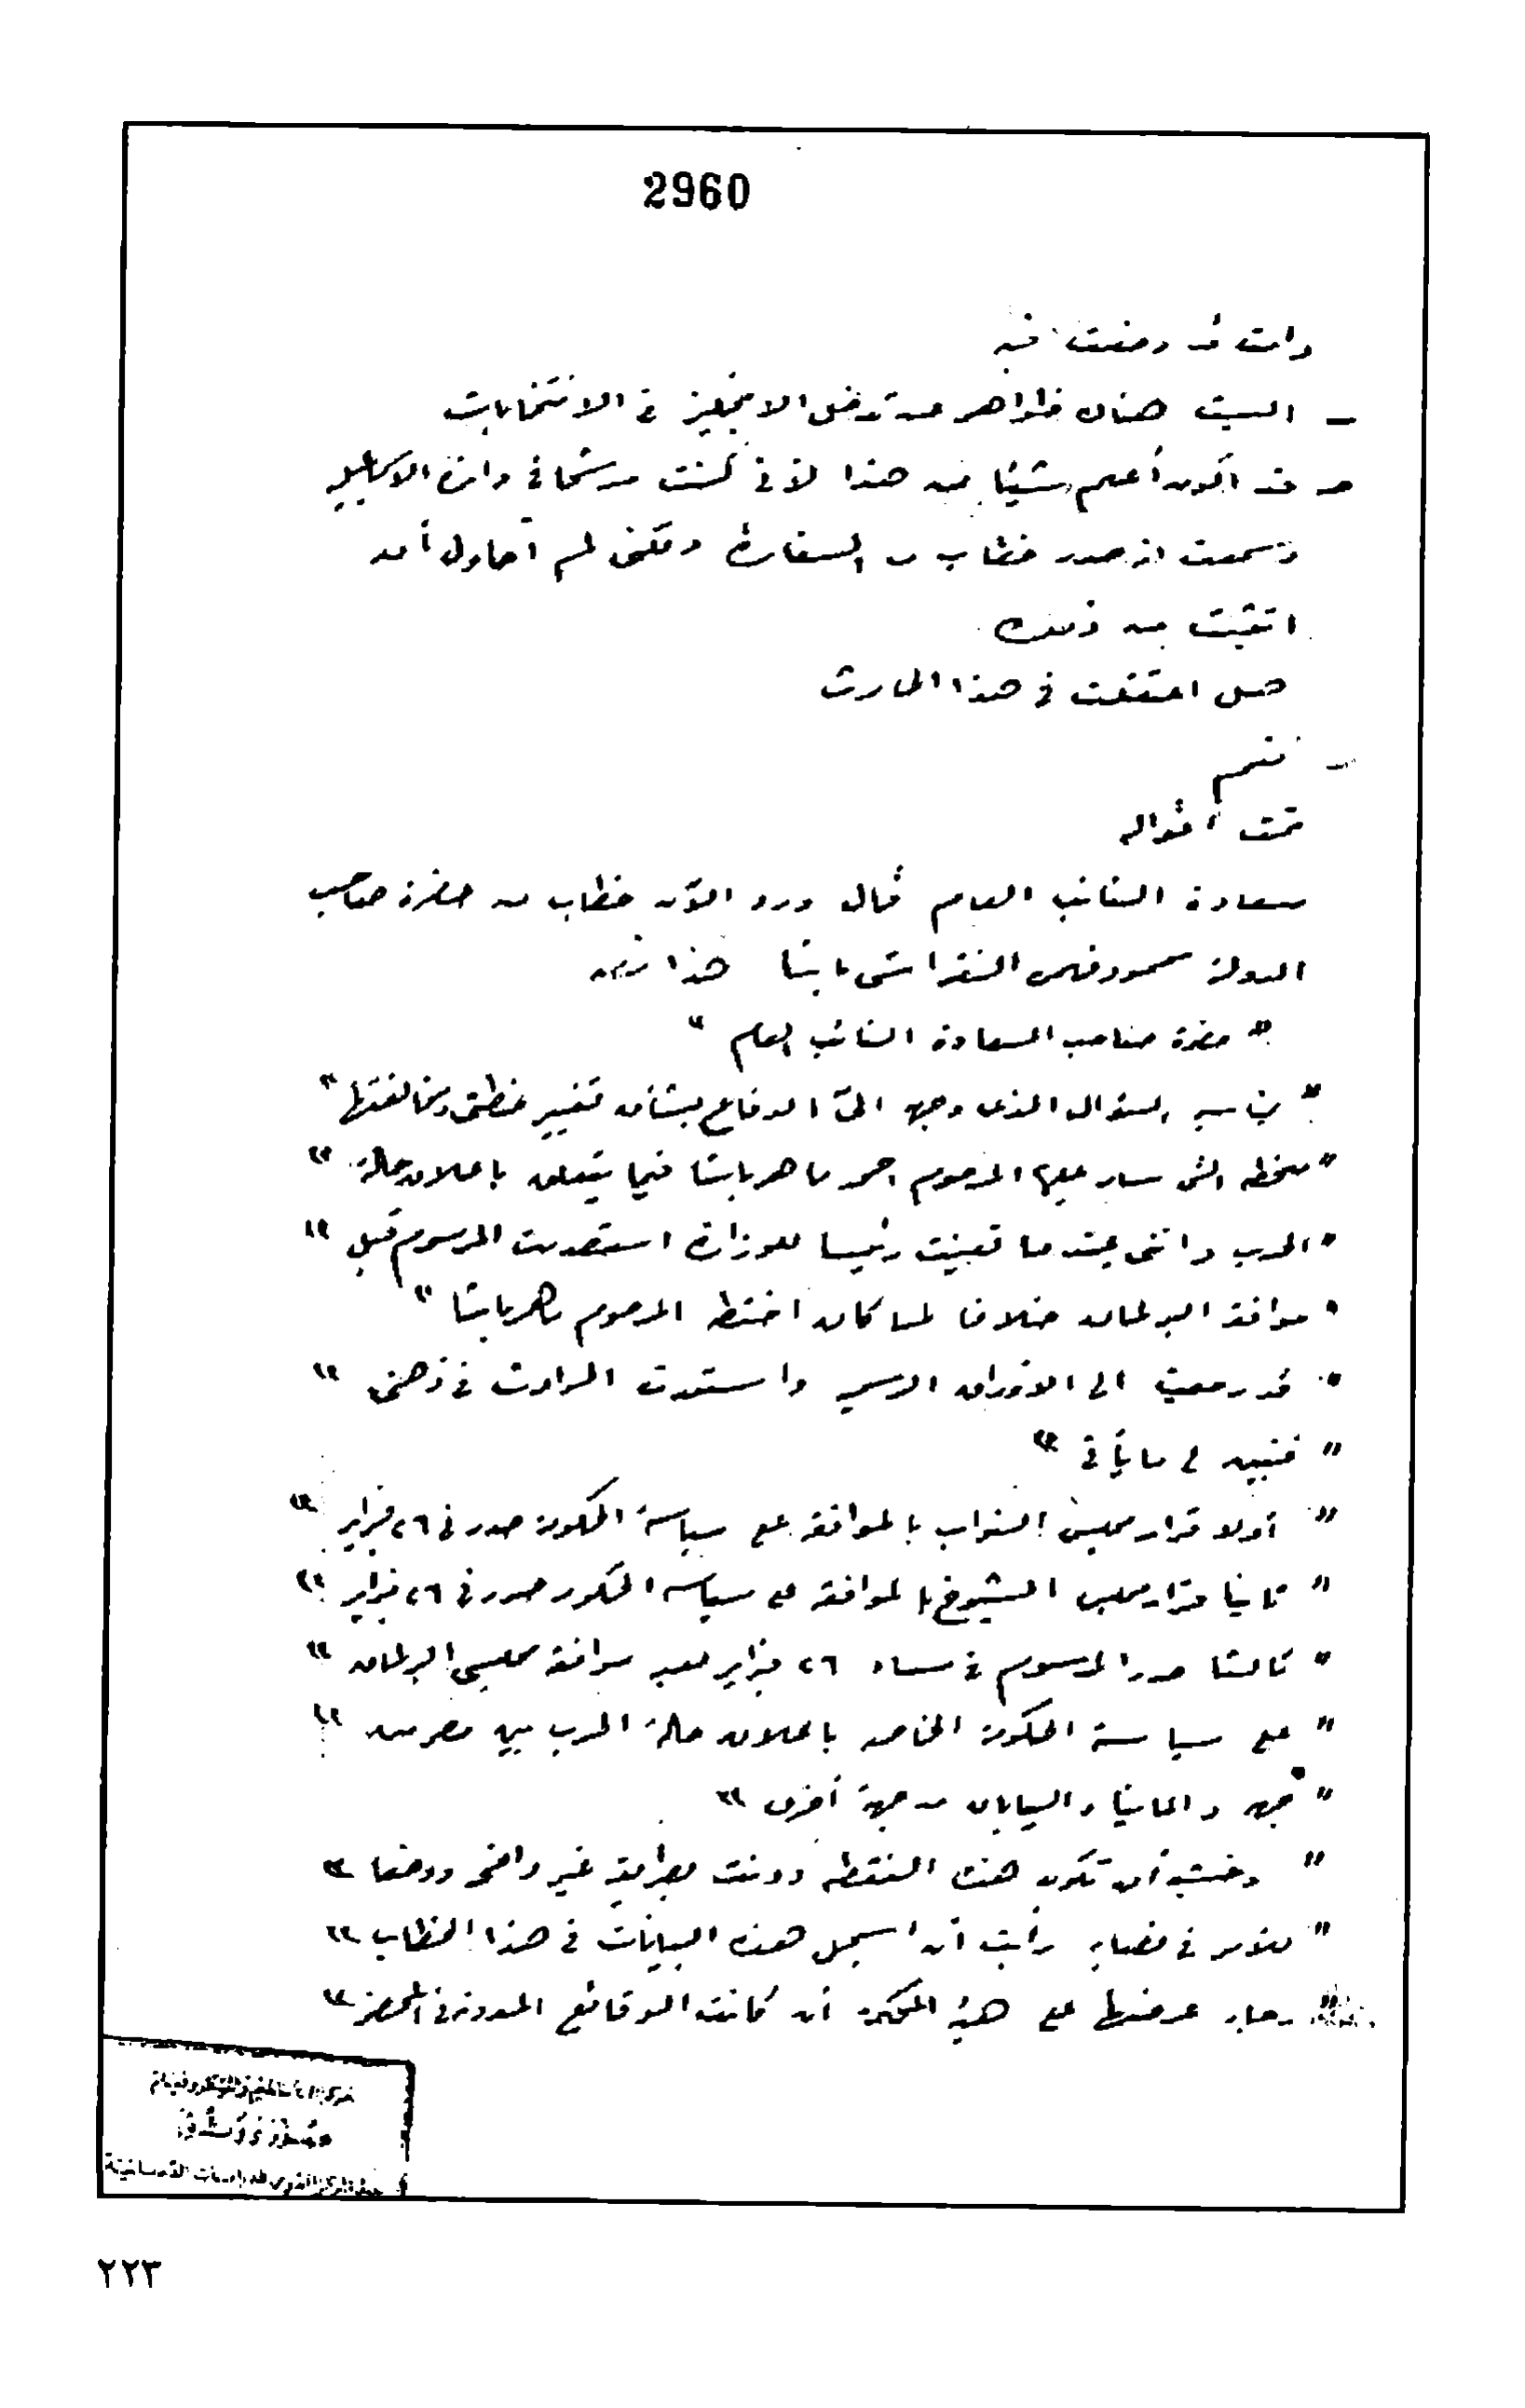 2960
وانت قد رفعت فيه
ـ اليست هناك ظواهر عن تدخل الانجليز في الانتخابات
ج قد اكون أعلم شيئا من هذا لأني كنت مرشحا في دائرة الاسماعيلية
وسمعت انه صدر خطاب من السفارة ولكني لم أحاول أن
اتثبت من ذلك
هل اعتقلت في هذا الحادث
ـ نعم
تمت أقواله
سعادة النائب العام قال ورد الآن خطاب من حضرة صاحب
الدولة محمود فهمى النقراشى باشا هذا نصه
" حضرة صاحب السعادة النائب العام "
" السؤال الذى وجهه الىّ الدفاع بشأن تغيير خطتى ومخالفتها "
" للخطه التى سار عليها المرحوم احمد ماهر باشا فيما يتعلق باعلان حالة "
" الحرب واننى عندما تعينت رئيسا للوزارة استصدرت المرسوم قبل "
" موافقة البرلمان خلافا لما كان اختطه المرحوم ماهر باشا "
" قد رجعت الى الاوراق الرسمية واستعدت الحوادث في ذهنى "
" فتبين لى ما يأتى "
" أولا قرار مجلس النواب بالموافقة على سياسة الحكومة صدر في ٢٦ فبراير "
" ثانيا قرار مجلس الشيوخ بالموافقة على سياسة الحكومة صدر في ٢٦ فبراير "
" ثالثا صدر المرسوم في مساء ٢٦ فبراير بعد موافقة مجلسى البرلمان "
" على سياسة الحكومة الخاصة باعلان حالة الحرب بين مصر من "
" جهة والمانيا واليابان من جهة أخرى "
" وخشية أن تكون هذه النقطه دونت بطريقة غير واضحة ووضعا "
" للأمر في نصابه رأيت أن اسجل هذه البيانات في هذا الخطاب "
" رجاء عرضها على هيئة المحكمة أن كانت الوقائع المدونة في المحضر "
٢٢٣